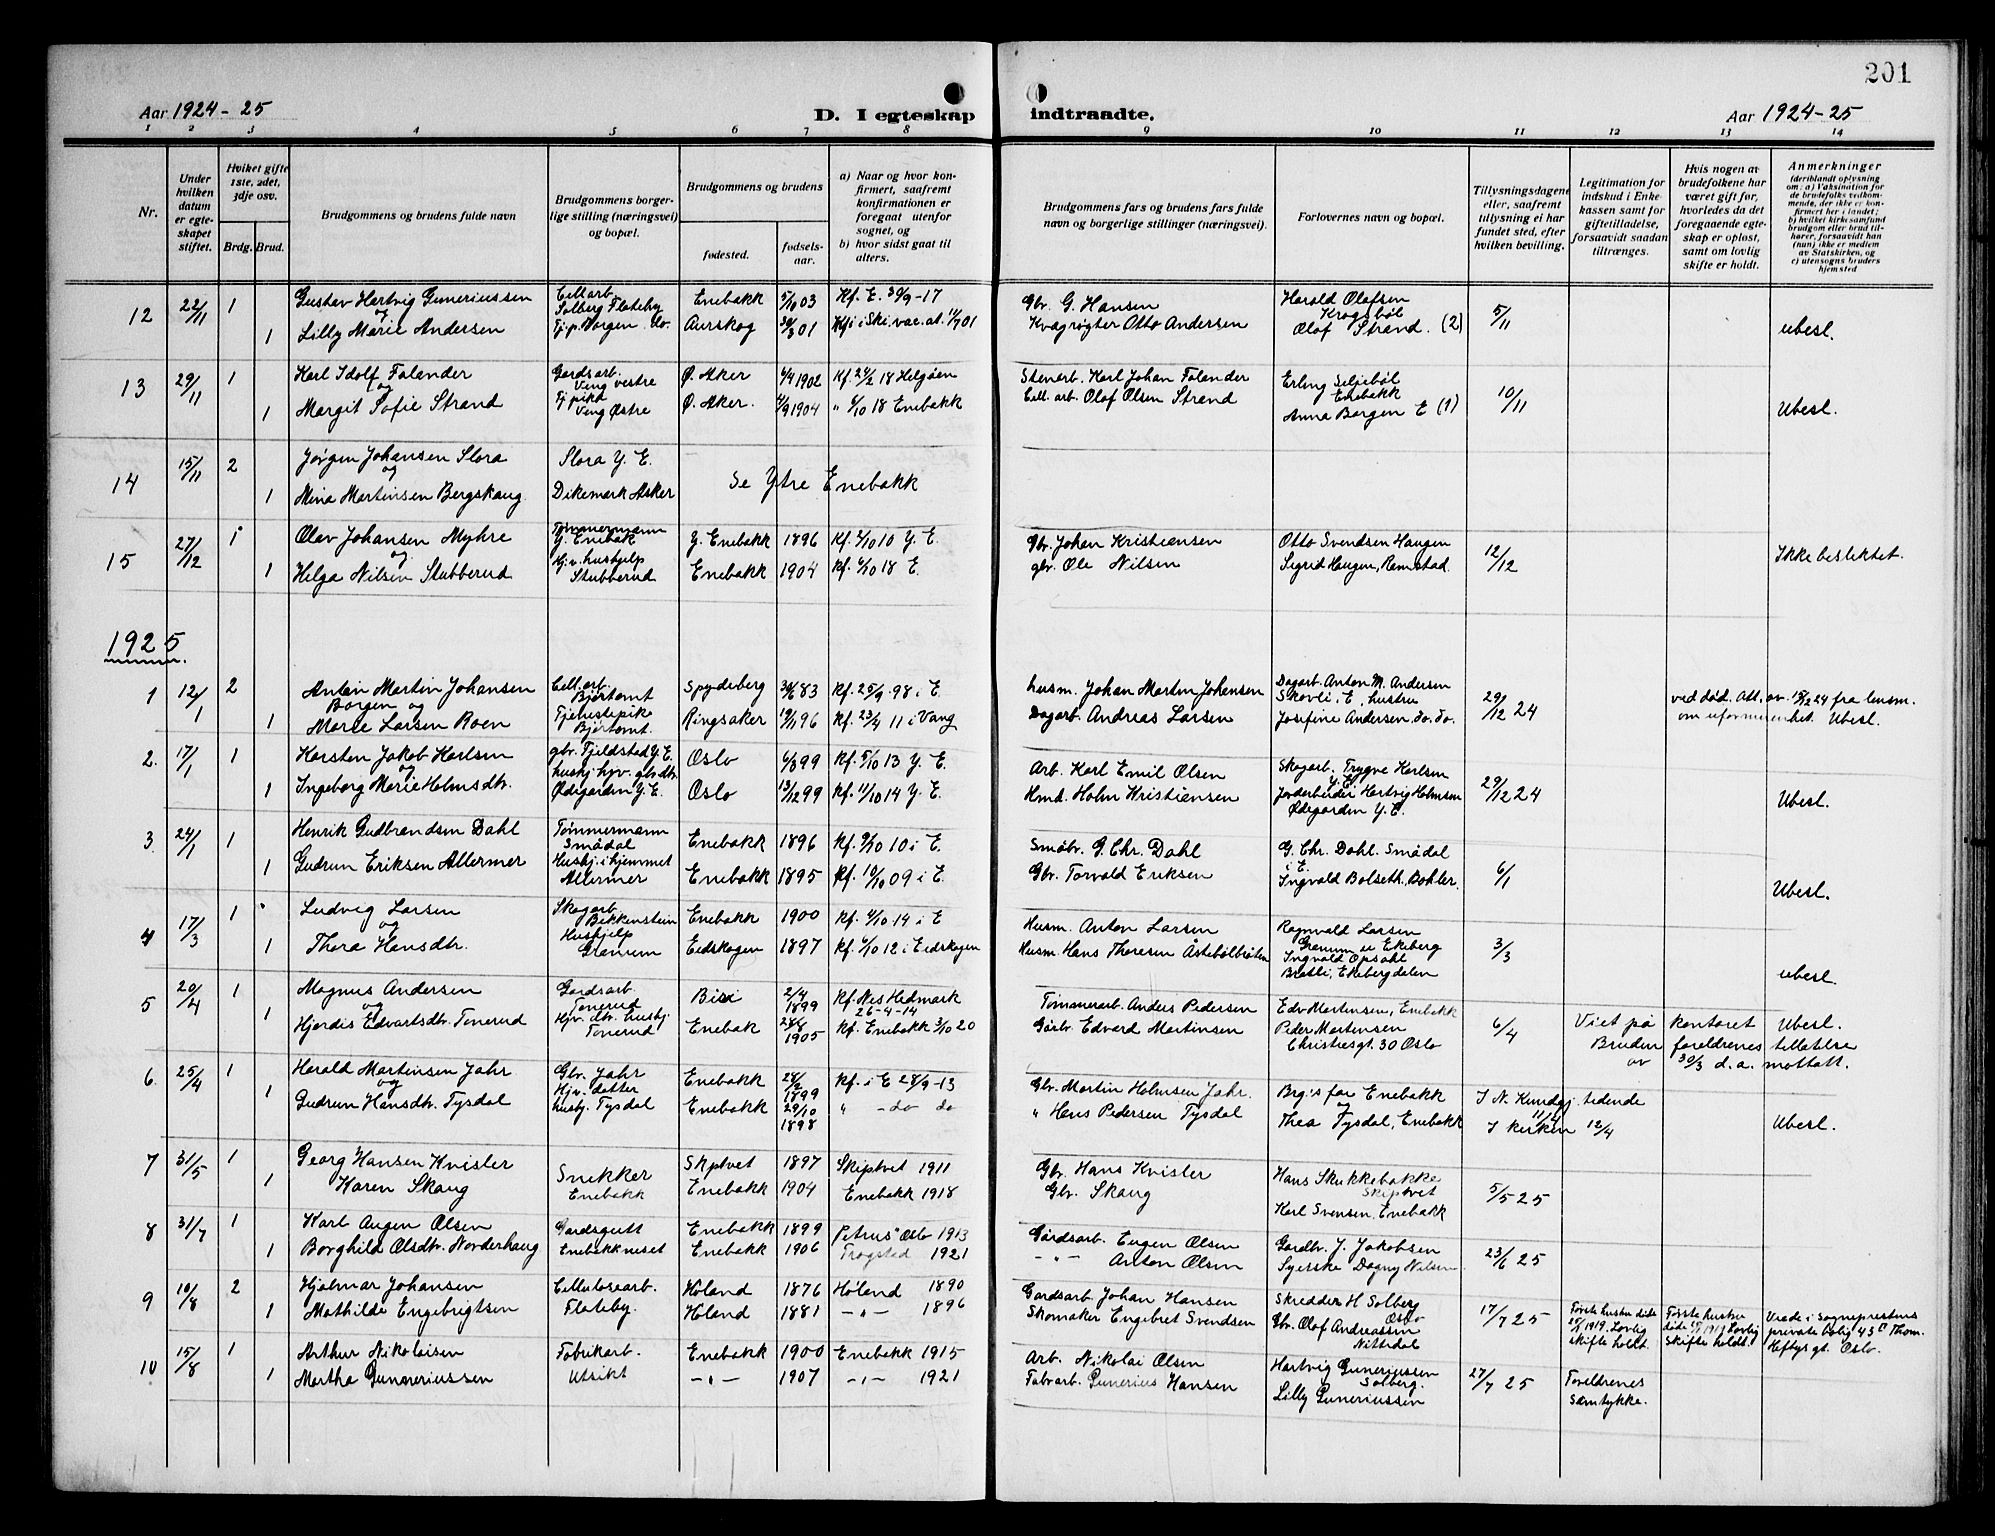 201
Aar 1924-25
D. I egteskap
indtraadte.
Aar 1924-25
1 2 3 4 5 6 7 8 9 10 11 12 13 14
Nr.
Under hvilken datum er egteskapet stiftet.
Hvilket gifte 1ste, 2det, 3dje osv.
Brdg. Brud.
Brudgommens og brudens fulde navn
Brudgommens borgerlige stilling (næringsvei) og bopæl.
Brudgommens og brudens
fødested.
fødselsaar.
a) Naar og hvor konfirmert, saafremt konfirmationen er foregaat utenfor sognet, og
b) hvor sidst gaat til alters.
Brudgommens fars og brudens fars fulde navn og borgerlige stillinger (næringsvei).
Forlovernes navn og bopæl.
Tillysningsdagene eller, saafremt tillysning ei har fundet sted, efter hvilken bevilling.
Legitimation for indskud i Enkekassen samt for giftetilladelse, forsaavidt saadan tiltrænges.
Hvis nogen av brudefolkene har været gift før, hvorledes da det foregaaende egteskap er opløst, samt om lovlig skifte er holdt.
Anmerkninger (deriblandt oplysning om: a) Vaksination for de brudefolks vedkommende, der ikke er konfirmert her i landet; b) hvilket kirkesamfund brudgom eller brud tilhører, forsaavidt han (hun) ikke er medlem av Statskirken, og c) utensogns bruders hjemsted
12 22/11 1 Gustav Hartvig Guneriussen Cell.arb. Solberg Flateby Enebakk 5/10 03 Kf. E. 30/9-17 Gbr. G. Hansen Harald Olafsen Krogsbøl 5/11
og
1 Lilly Marie Andersen Aurskog 01 Kvægrøgter Otto Andersen Olof Strand. (2) ubesl.
13 29/11 1 Karl Idolf Folander Gardsarb. Ving vestre Ø. Aker 4/4 1902 Kf. 24/2 18 Helgøen Stenarb. Karl Johan Folander Erling Seljebøl Enebakk 10/11
og
1 Margit Sofie Strand Tj.pike Ving Østre Ø. Aker. 4/9 1904 " 6/10 18 Enebakk Cell. arb. Olof Olsen Strand Anna Borgen E (1) Ubesl.
14 15/11 2 Jørgen Johansen Slora Slora Y. E.
og
1 Mina Martinsen Bergskaug Dikemark Asker Se Ytre Enebakk
15 27/12 1 Olav Johansen Myhre Tømmermann Y. Enebak Y. Enebakk 1896 Kf. 2/10 10 Y. E. Gbr. Johan Kristiansen Otto Svendsen Haugen 12/12
og
1 Helga Nilsen Stubberud Hjv. hushjelp Stubberud Enebakk 1904 Kf. 6/10 18 E. gbr. Ole Nilsen Sigrid Haugen, Ramstad. Ikke beslektet.
1925
1 12/1 2 Anton Martin Johansen Borgen og Cell.arb. Bjertomt Spydeberg 30/6 83 Kf. 25/9-98 i E. husm. Johan Martin Johansen Dagarb. Anton M. Andersen Skovli, E, hustru 29/12 24 ved død. Att. av 15/12 24 fra lensm.
1 Marie Larsen Boen Tjenestepike Bjertomt. Ringsaker 19/11 96 Kf. 23/4 11 i Vang Dagarb. Andreas Larsen Josefine Andersen do. do. om uformuenhet. Ubesl.
2. 17/1 1 Karsten Jakob Karlsen gbr. Fjeldstad Y. E. Oslo 6/8 99 Kf. 5/10 13 Y. E. Arb. Karl Emil Olsen Skogarb. Trygve Karlsen Y. E. 29/12 24
og
1 Ingeborg Marie Holmsdtr. hushj. hjv. gbr.dtr. Ødegarden Y. E. Oslo 13/12 99 Kf. 11/10 14 Y. E. Hmd. Holm Kristiansen Jordarbeider Hartvig Holmsen Ødegarden Y. E. Ubesl.
3. 24/1 1 Henrik Gudbrandsen Dahl Tømmermann Smådal Enebakk 1896 Kf. 9/10 10 i E. Småbr. G. Chr. Dahl G. Chr. Dahl. Smådal i E. 6/1
1 Gudrun Eriksen Allermer Hushj. i hjemmet Allermer Enebakk 1895 Kf. 10/10 09 i E. Gbr. Torvald Eriksen Ingvald Bolseth, Bohler. Ubesl.
4 17/3 1 Ludvig Larsen Skogarb. Bekkenstein Enebakk 1900 Kf. 4/10 14 i E Husm. Anton Larsen Ragnvald Larsen Granum u Ekeberg 3/3
og
1 Thora Hansdtr. Hushjelp Granum Eidskogen 1897 Kf. 6/10 12 i Eidskogen Husm. Hans Thoresen Åstebølbråten Ingvald Opsahl Bratli, Ekebergdalen ubesl.
5 20/4 1 Magnus Andersen Gardsarb. Tonerud Biri 2/4 1899 Kf. Nes Hedmark 26-4-14 Tømmerarb. Anders Pedersen Edv Martinsen, Enebakk 6/4 Viet på kontoret Ubesl.
og
1 Hjørdis Edvartsdtr. Tonerud Hjv. dtr. hushj. Tonerud Enebak 28/8 1905 Kf. Enebakk 3/10 20 Gårbr. Edvard Martinsen Peder Martensen Christiesgt. 30 Oslo Bruden foreldrenes tillatelse av 30/3 d.a. mottatt.
6. 25/4 1 Harald Martinsen Jahr Gbr. Jahr Enebakk 28/2 1899 Kf. i E 28/9-13 Gbr. Martin Holmsen Jahr. Brg's far Enebakk I N. Kundgj. tidende 11/4
og
1 Gudrun Hansdtr. Tysdal Hjv. datter hushj. Tysdal Enebakk 29/10 1898 " - do do " Hans Pedersen Tysdal Thea Tysdal, Enebakk I kirken 12/4 Ubesl.
7 31/5 1 Georg Hansen Kvisler Snekker Skptvet 1897 Skiptvet 1911 Gbr. Hans Kvisler Hans Skukkebakke Skiptvet 5/5 25
1 Karen Skaug Enebakk Enebakk 1904 Enebakk 1918 Gbr. Skaug Karl Svensen, Enebakk
8 31/7 1 Karl Augen Olsen Gardsgutt Enebakk 1899 Petrus Oslo 1913 Gårdsarb. Eugen Olsen Gardbr. J. Jakobsen 23/6 25
1 Borghild Olsdtr. Norderhaug Enebakkneset Enebakk 1906 Trøgsted 1921 -"- Anton Olsen Syerske Dagny Nilsen
9 10/8 2 Hjalmar Johansen Cellulosearb. Høland 1876 Høland 1890 Gardsarb. Johan Hansen Skredder H Solberg Oslo 17/7 25 Første hustru døde 1919. Lovlig skifte holdt. Første hustru døde 1919 Lovlig Skifte holdt. Viede i sogneprestens private bolig 43 II Thom. Heftysgt. Oslo.
1 Mathilde Engebrigtsen Flateby. Høland 1881 -"- 1896 Skomaker Engebret Svendsen Gbr. Olaf Andreassen Nittedal
10 15/8 1 Arthur Nikolaisen Fabrikarb. Enebakk 1900 Enebakk 1915 Arb. Nikolai Olsen Hartvig Guneriussen Solberg. 27/7 25 Foreldrenes samtykke.
1 Martha Gunneriussen Utsikt -"- 1907 -"- 1921 Fabr.arb. Gunerius Hansen Lilly Guneriussen